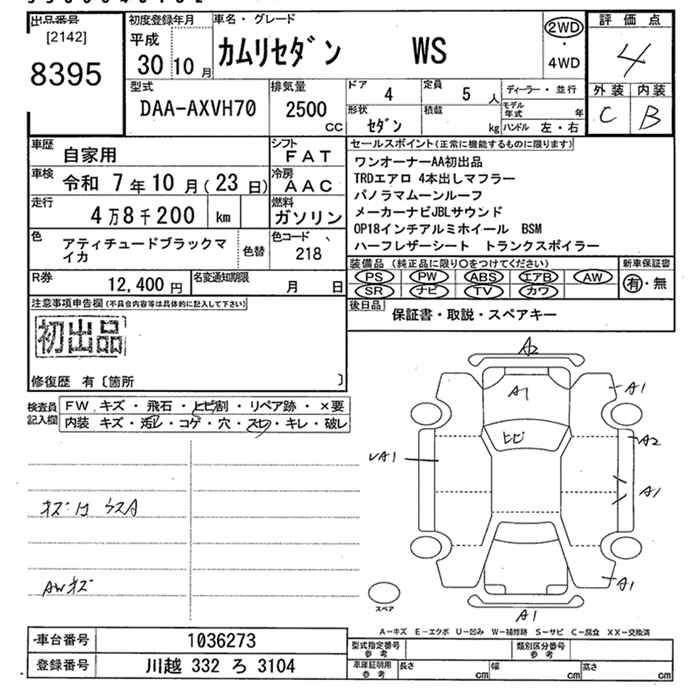 出品番号
[2142]
8395
初度登録年月
平成
30 10 月
車名・グレード
カムリセダン WS
2WD
・
4WD
評価点
4
外装 内装
C B
型式
DAA-AXVH70
排気量
2500
CC
ドア 4
定員 5 人
形状 セダン
積載 kg
ディーラー・並行
モデル年式 年
ハンドル 左・右
車歴 自家用
シフト FAT
車検 令和 7年10月(23日)
冷房 AAC
走行 4万8千200 km
燃料 ガソリン
色 アティチュードブラックマイカ
色替
色コード 218
R券 12,400円
名変通知期限 月 日
セールスポイント(正常に機能するものに限ります)
ワンオーナーAA初出品
TRDエアロ 4本出しマフラー
パノラマムーンルーフ
メーカーナビJBLサウンド
OP18インチアルミホイール BSM
ハーフレザーシート トランクスポイラー
装備品 (純正品に限り○をつけてください)
PS PW ABS エアB AW
SR ナビ TV カワ
新車保証書
有・無
後日品 保証書・取説・スペアキー
注意事項申告欄(不具合内容等は具体的に記入して下さい)
初出品
修復歴 有〔箇所 〕
検査員記入欄
FW キズ・飛石・ヒビ割・リペア跡・×要
内装 キズ・汚レ・コゲ・穴・スレ・キレ・破レ
AWキズ
A2
A1
A1
ヒビ
A2
A1
A1
A1
スペア
A-キズ E-エクボ U-凹み W-補修跡 S-サビ C-腐食 XX-交換済
車台番号 1036273
登録番号 川越 332 ろ 3104
型式指定番号 参考
類別区分番号 参考
車庫証明用 参考
長さ cm 幅 cm 高さ cm